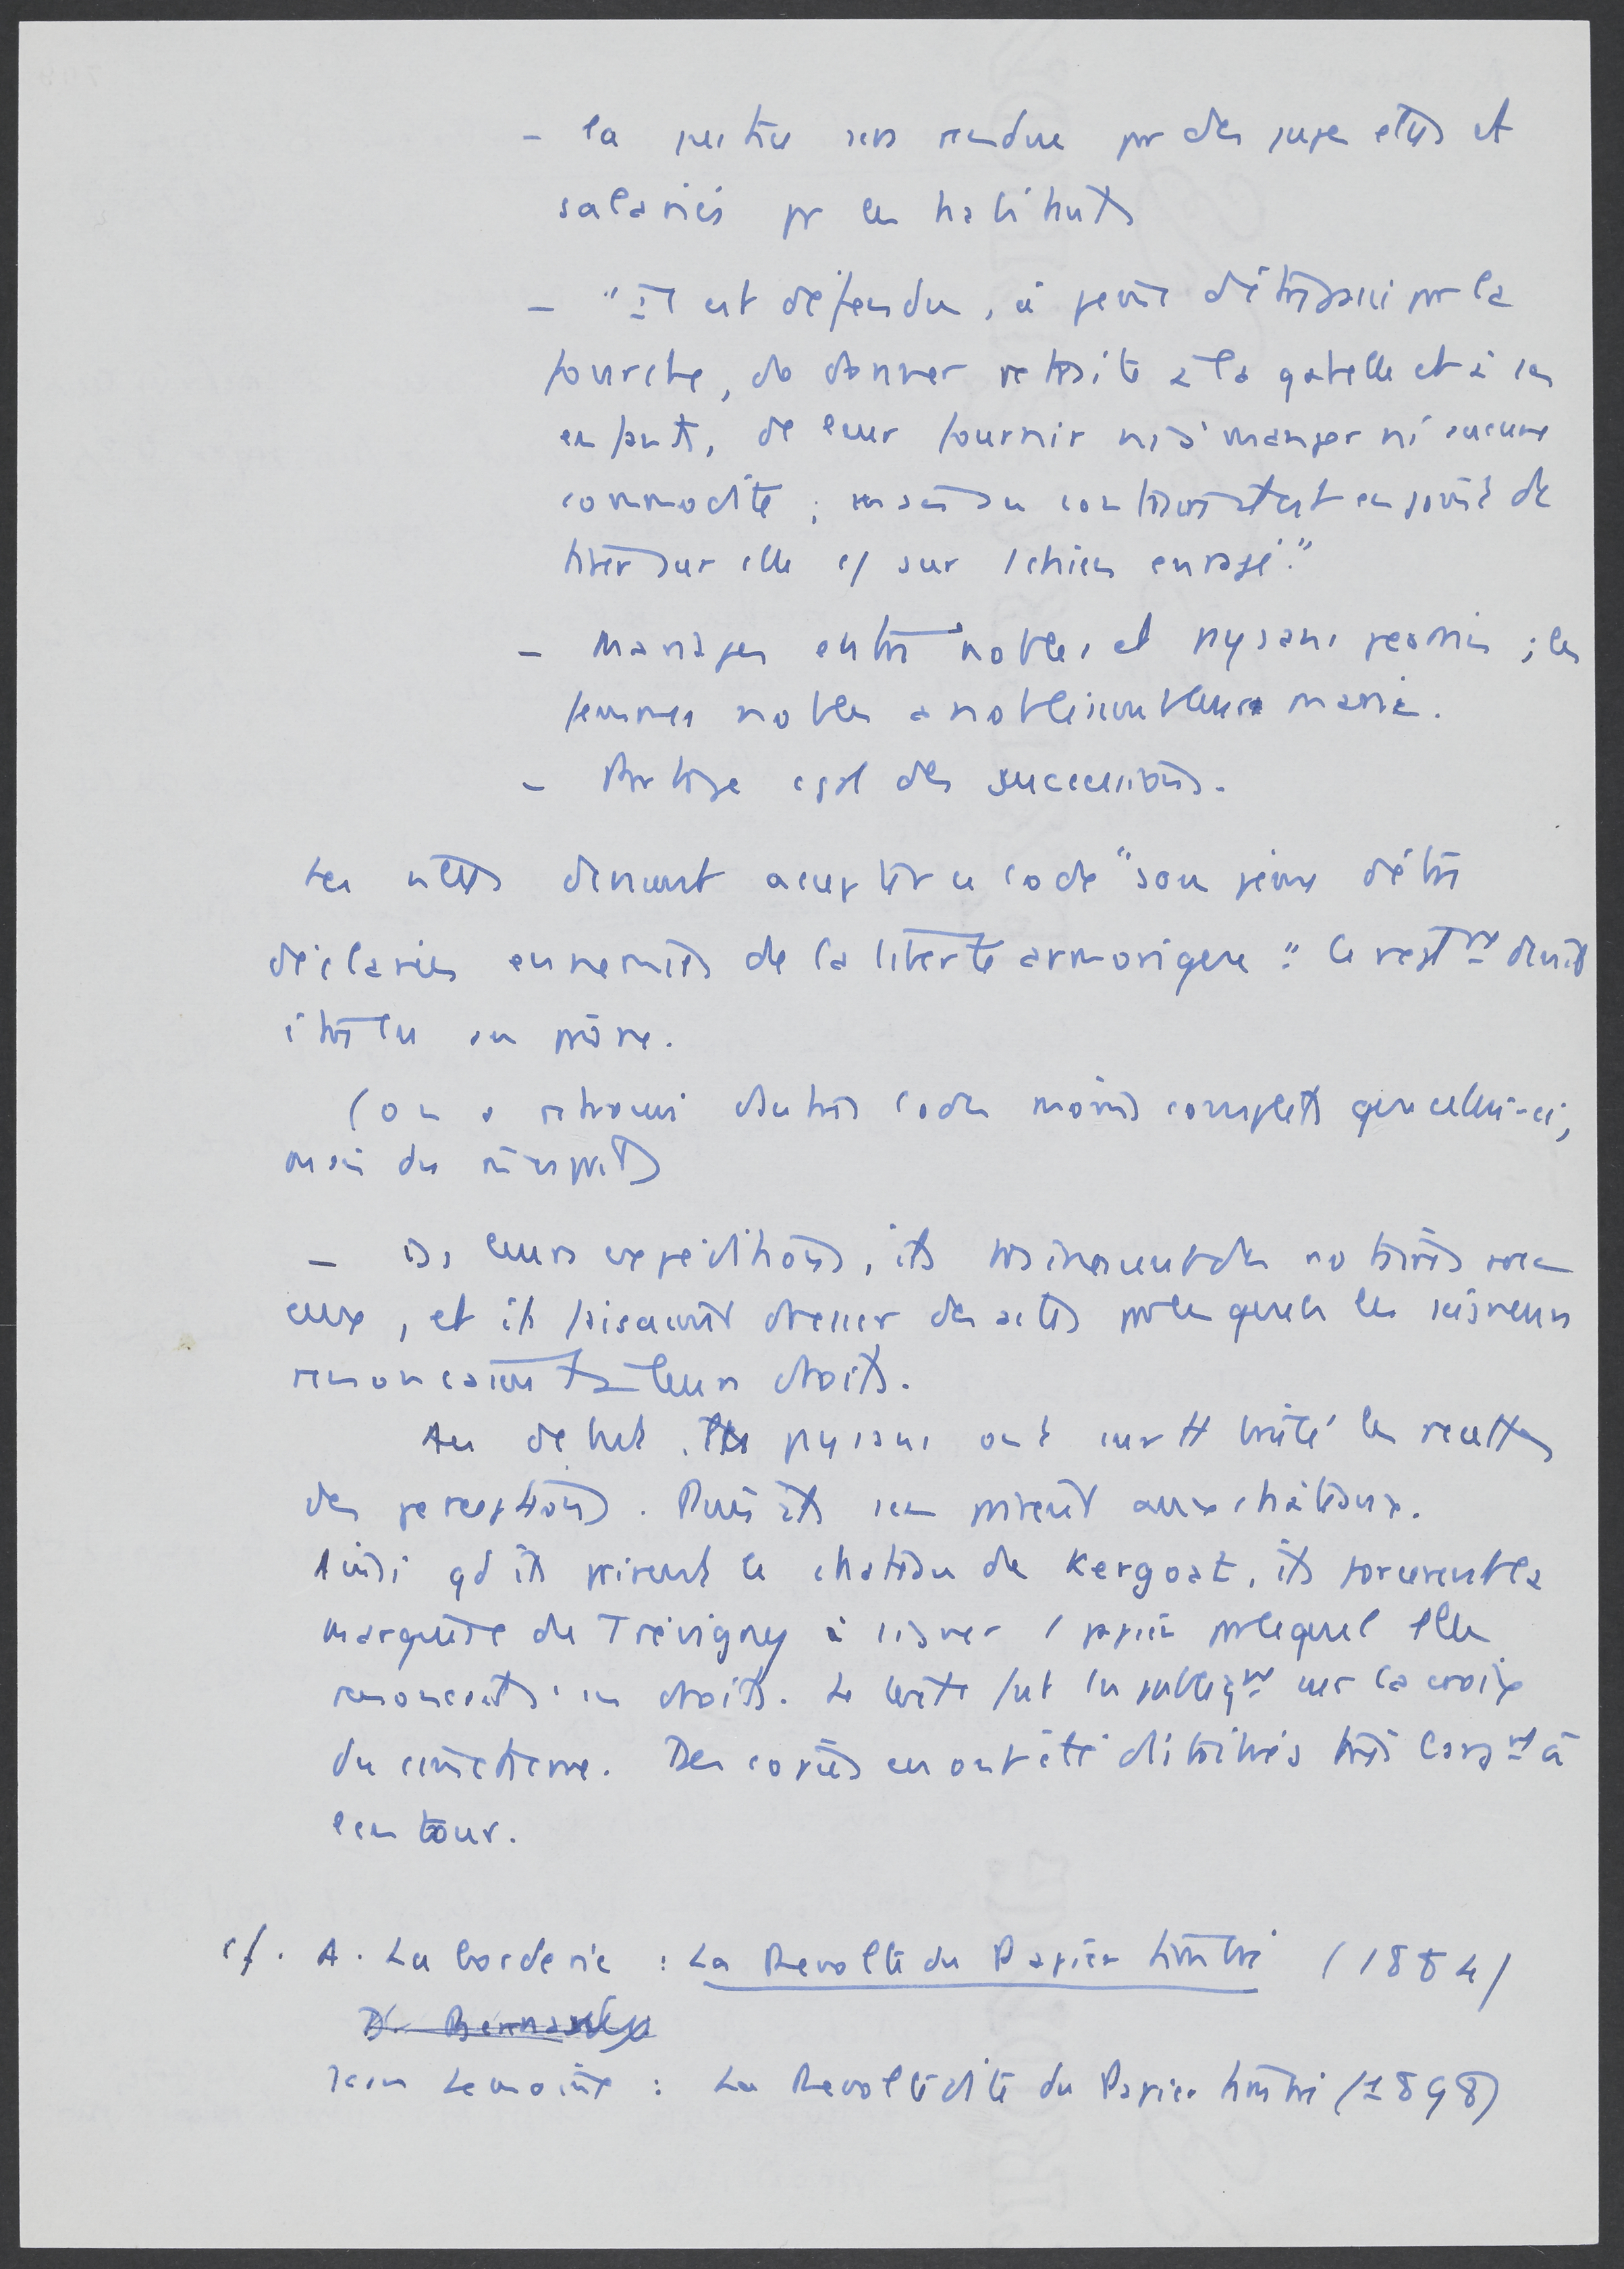 - la justice sera rendue pr des juges élus et
salariés pr les habitants
- "Il est défendu, à peine d'être passé pr la
fourche, de donner retraite à la gabelle et à ses
enfants, de leur fournir ni à manger ni aucune
commodité ; mais au contraire il est enjoint de
tirer sur elle c/ sur 1 chien enragé."
- Mariages entre nobles et paysans permis ; les
femmes nobles anobliront leurs maris.
- Partage égal des successions.
Les villes devront accepter ce code "sous peine d'être
déclarées ennemies de la liberté armorique". Ce règlt devait
être lu au prône.
(on a retrouvé d'autres codes moins complets que celui-ci,
mais du même esprit)
- Ds leurs expéditions, ils traînaient des notaires avec
eux, et ils faisaient dresser des actes pr lesquels les seigneurs
renonçaient à leurs droits.
Au début, les paysans ont surtt brûlé les recettes
des perceptions. Puis ils s'en prirent aux châteaux.
Ainsi qd ils prirent le château de Kergoat, ils forcèrent la
marquise de Trévigny à signer 1 papier pr lequel elle
renonçait à ses droits. Le texte fut lu publiqt sur la croix
du cimetière. Des copies en ont été distribuées très largt à
l'entour.
cf. A. La Borderie : La Révolte du Papier timbré (1884)
Jean Lemoine : La Révolte dite du Papier timbré (1898)